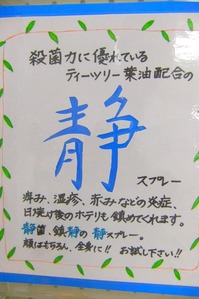 殺菌力に優れている
ティーツリー葉油配合の
静
スプレー
痒み、湿疹、赤みなどの炎症、
日焼け後のホテリも鎮めてくれます。
静菌、鎮静の静スプレー。
顔はもちろん、全身に!! お試し下さい!!